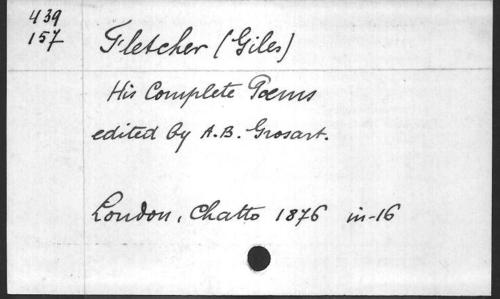 439
157
Fletcher (Giles)
His Complete Poems
edited by A.B. Grosart.
London, Chatto 1876 in-16